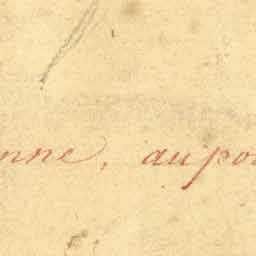 nne, aupo